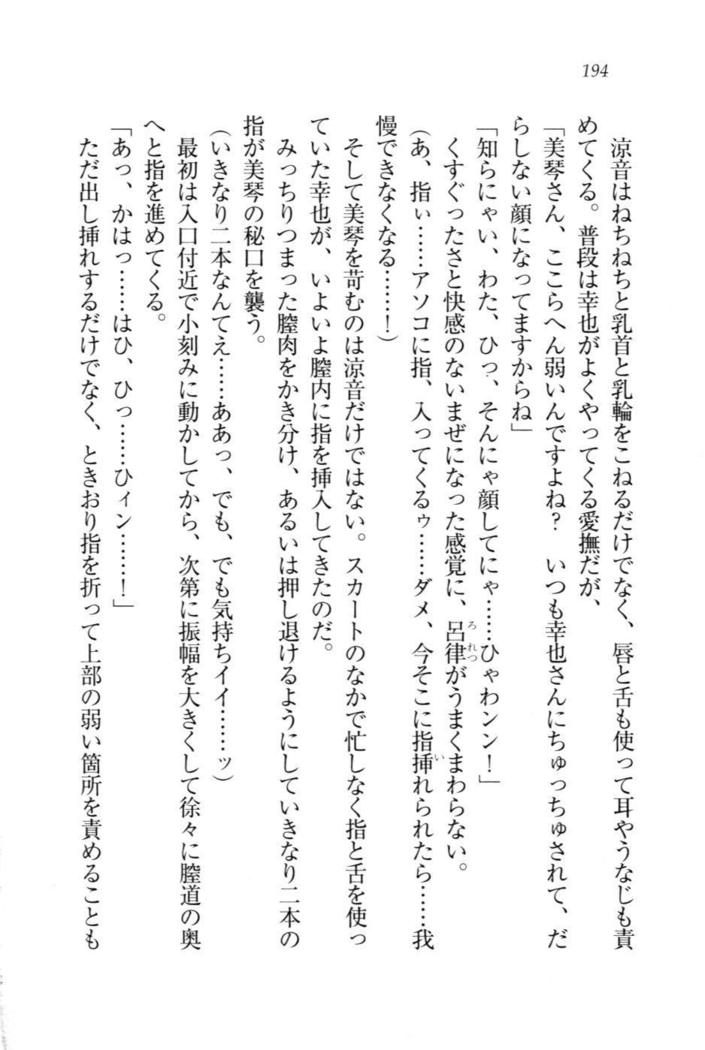 194
涼音はねちねちと乳首と乳輪をこねるだけでなく、唇と舌も使って耳やうなじも責
めてくる。普段は幸也がよくやってくる愛撫だが、
「美琴さん、ここらへん弱いんですよね?　いつも幸也さんにちゅっちゅされて、だ
らしない顔になってますからね」
「知らにゃい、わた、ひっ、そんにゃ顔してにゃ……ひゃわンン!」
くすぐったさと快感のないまぜになった感覚に、呂律がうまくまわらない。
(あ、指ぃ……アソコに指、入ってくるゥ……ダメ、今そこに指挿れられたら……我
慢できなくなる……!)
そして美琴を苛むのは涼音だけではない。スカートのなかで忙しなく指と舌を使っ
ていた幸也が、いよいよ膣内に指を挿入してきたのだ。
みっちりつまった膣肉をかき分け、あるいは押し退けるようにしていきなり二本の
指が美琴の秘口を襲う。
(いきなり二本なんてえ……ああっ、でも、でも気持ちイイ……ッ)
最初は入口付近で小刻みに動かしてから、次第に振幅を大きくして徐々に膣道の奥
へと指を進めてくる。
「あっ、かはっ……はひ、ひっ……ひィン……!」
ただ出し挿れするだけでなく、ときおり指を折って上部の弱い箇所を責めることも